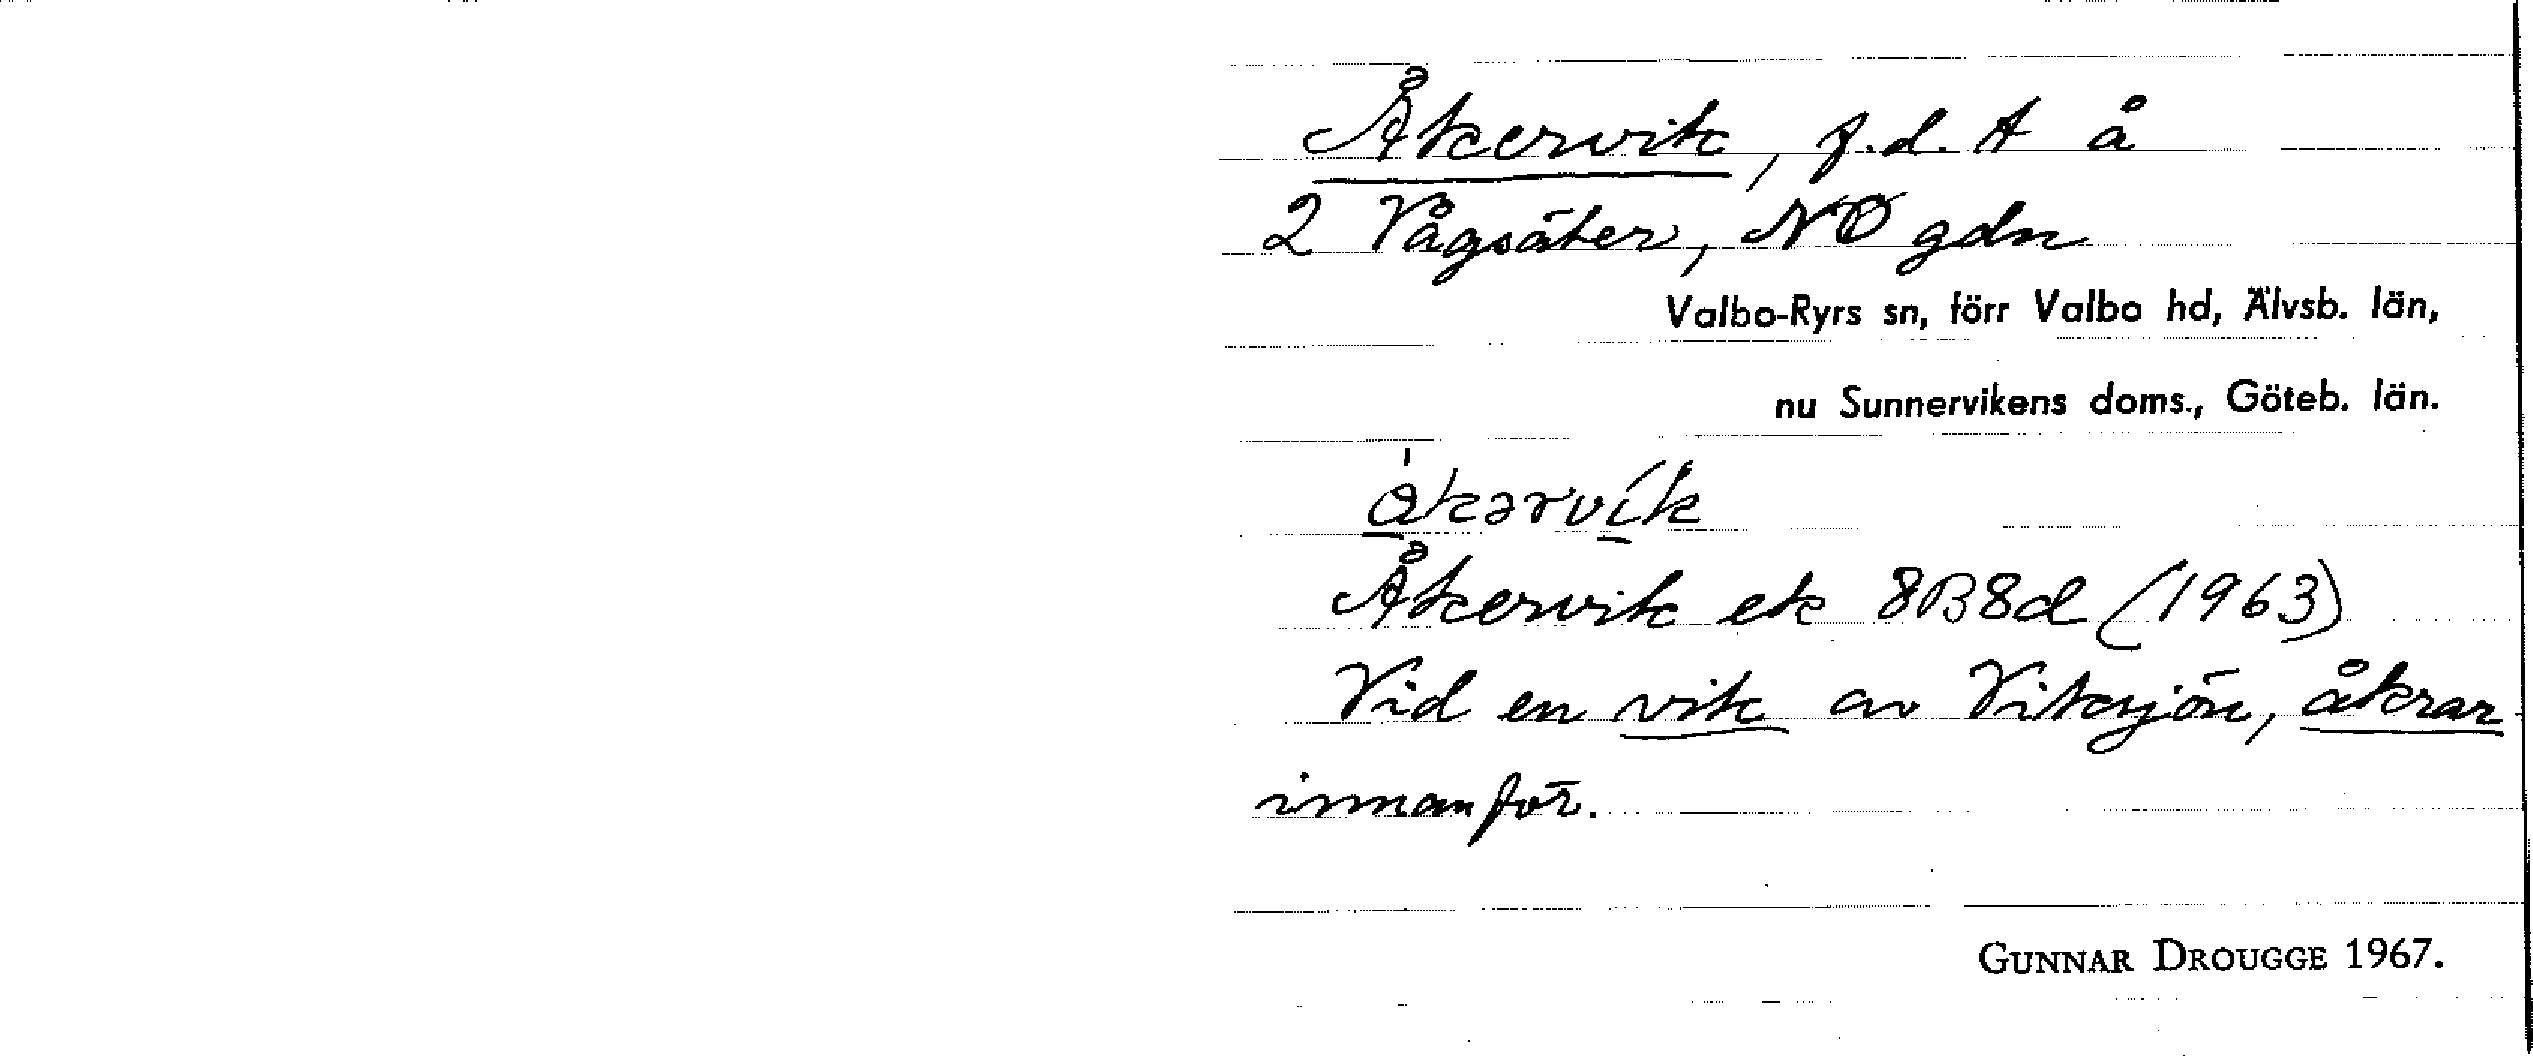 Åkervik, f.d. t å
2 Vågsäter, NÖ gdn
Valbo-Ryrs sn, förr Valbo hd, Älvsb. län,
nu Sunnervikens doms., Göteb. län.
Åkervik ek 8B8d (1963)
Vid en vik av Viksjön, åkrar
innanför.
GUNNAR DROUGGE 1967.